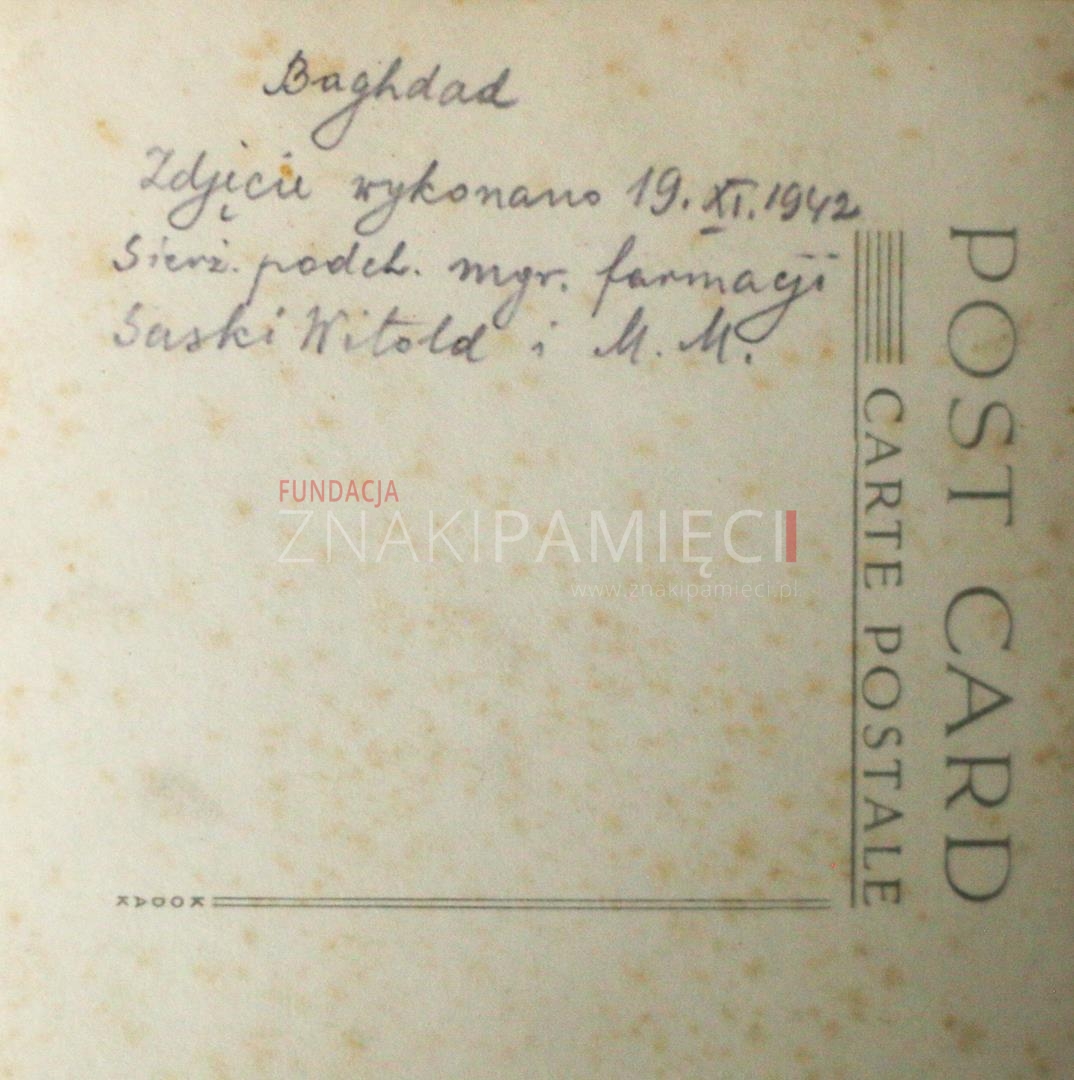 Baghdad
Zdjęcie wykonano 19. XI. 1942
Sierż. podch. mgr. farmacji
Saski Witold i M. M.
FUNDACJA
ZNAKIPAMIĘCI
www.znakipamieci.pl
POST CARD
CARTE POSTALE
KODAK